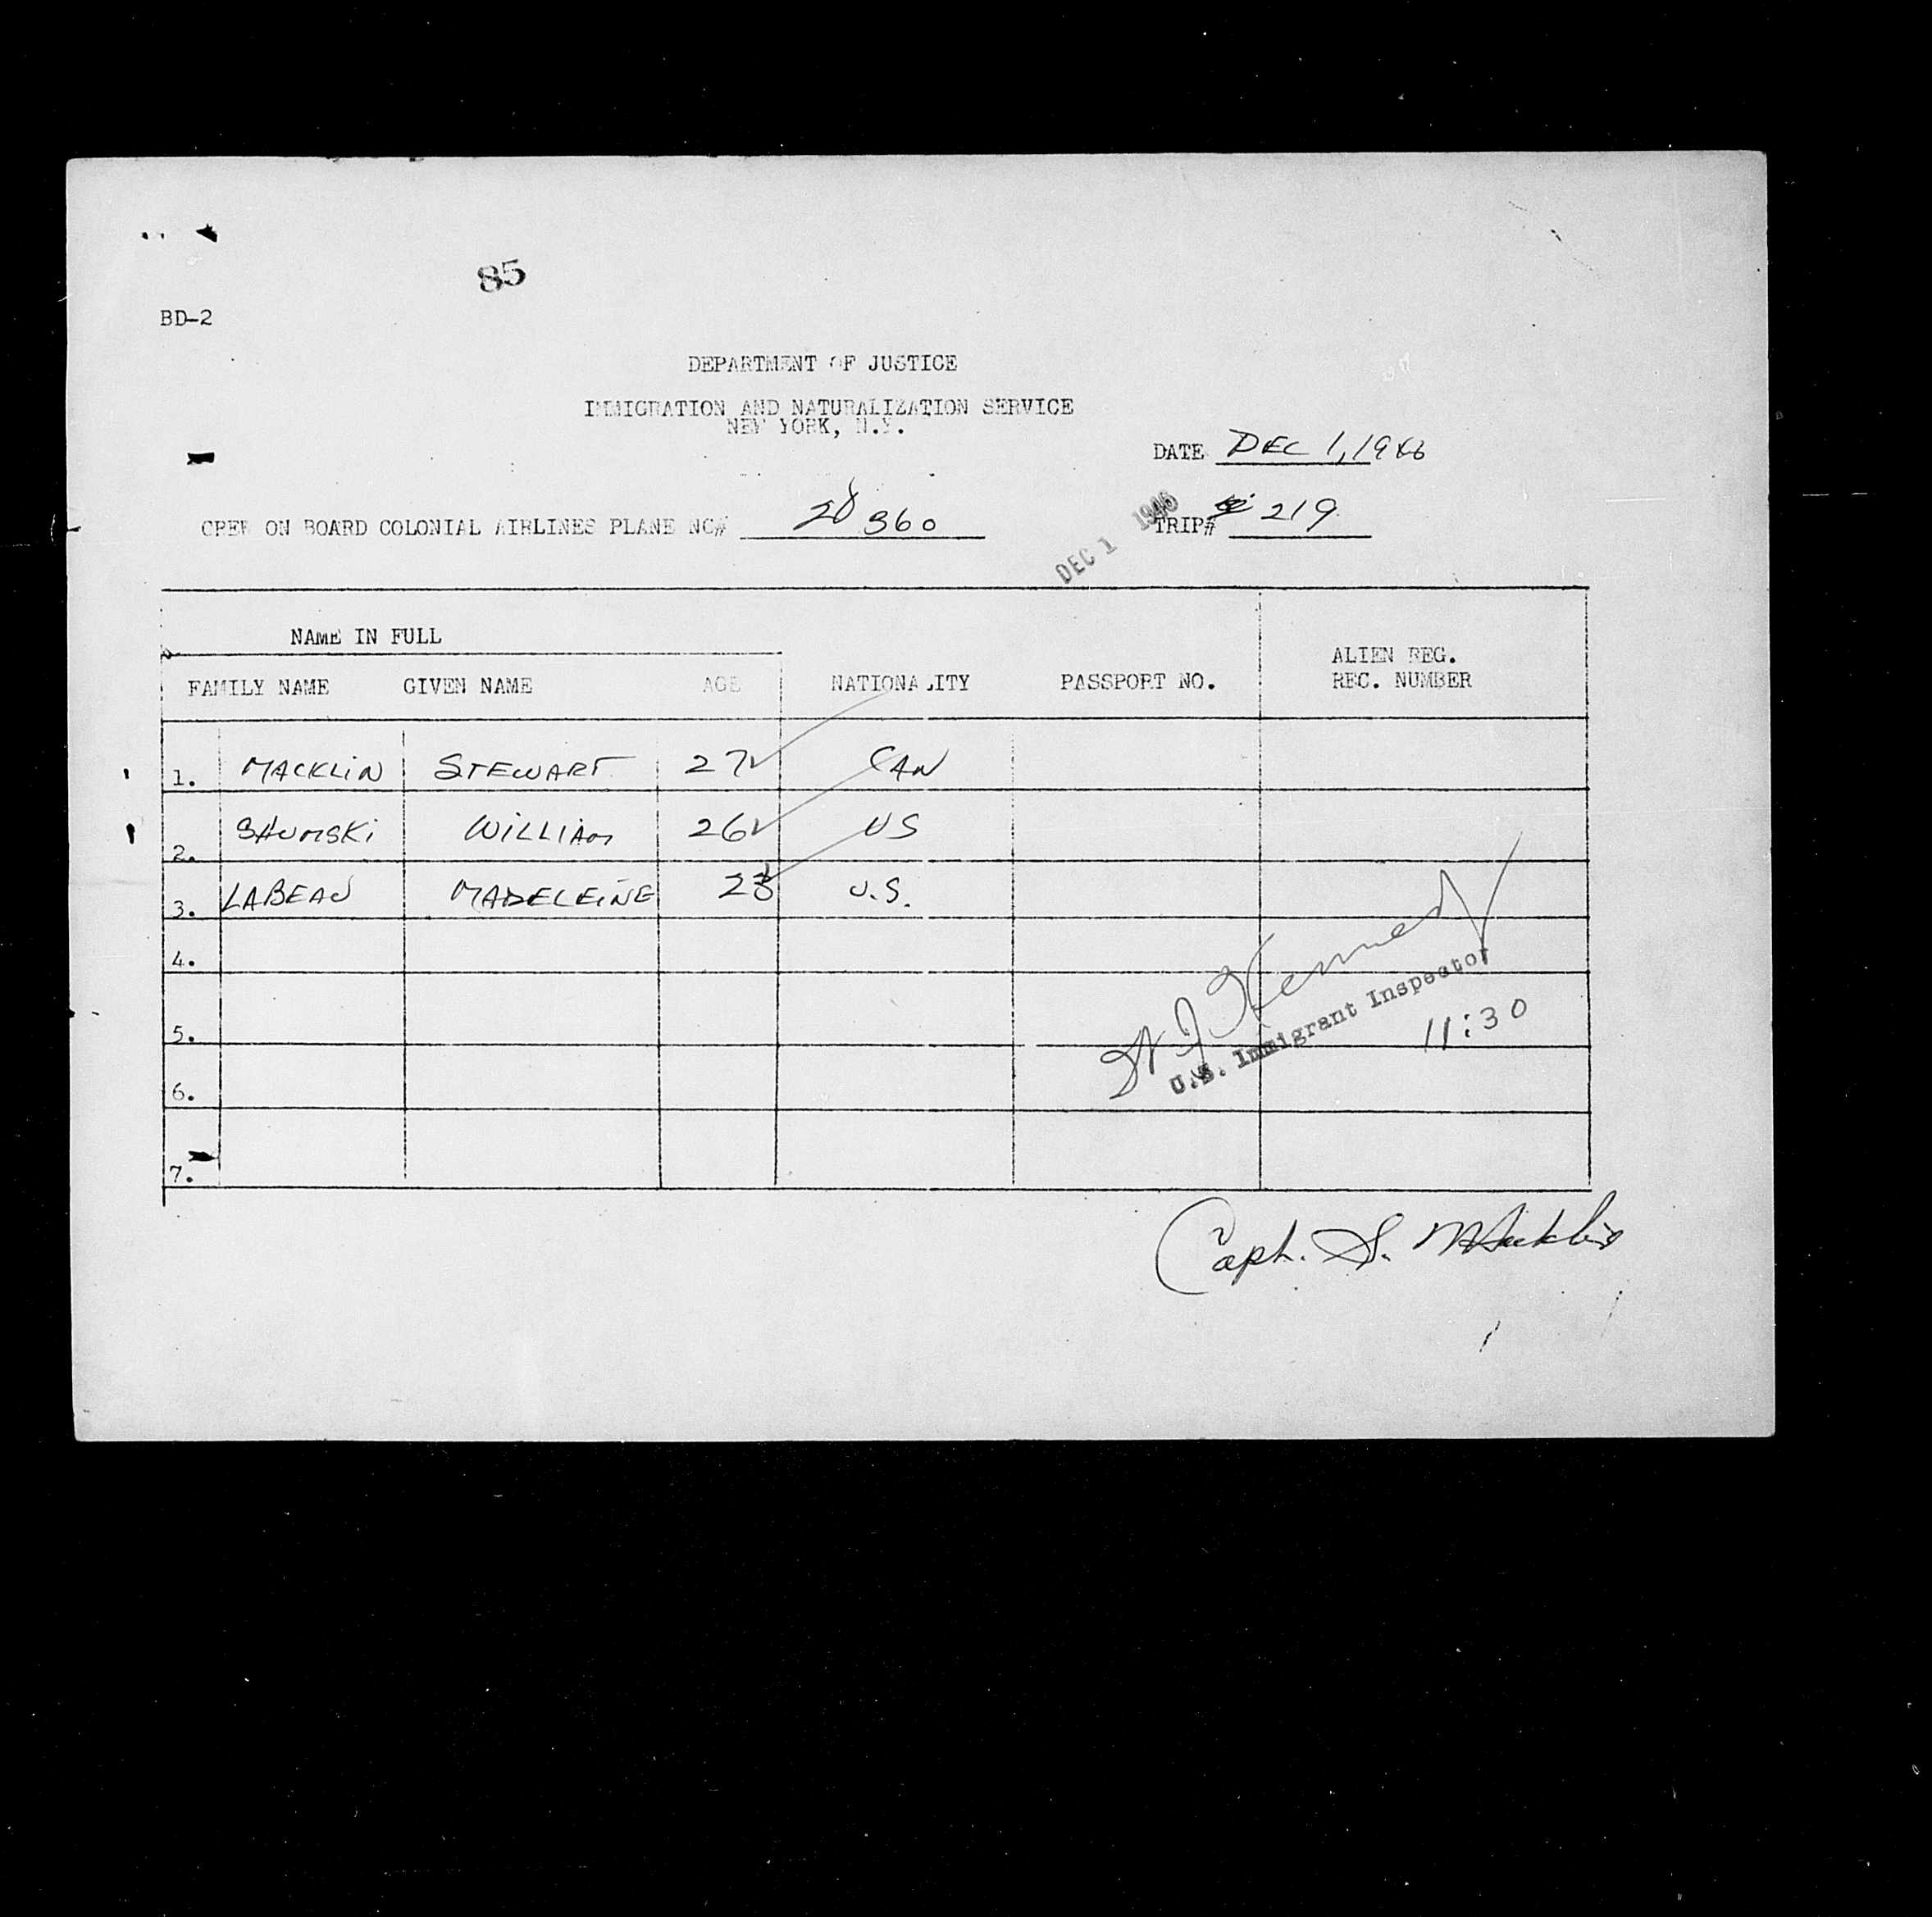 85
BD-2
DEPARTMENT OF JUSTICE
IMMIGRATION AND NATURALIZATION SERVICE
NEW YORK, N.Y.
DATE DEC 1, 1946
CREW ON BOARD COLONIAL AIRLINES PLANE NC# 28360
TRIP# 219
DEC 1 1946
NAME IN FULL
FAMILY NAME GIVEN NAME AGE NATIONALITY PASSPORT NO. ALIEN REG. REC. NUMBER
1. MACKLIN STEWART 27 CAN
2. WILLIAM 26 US
3. LABEAU MADELEINE 23 U.S.
4.
5.
6.
7.
Kennedy
U.S. Immigrant Inspector
11:30
Capt. S. Macklin